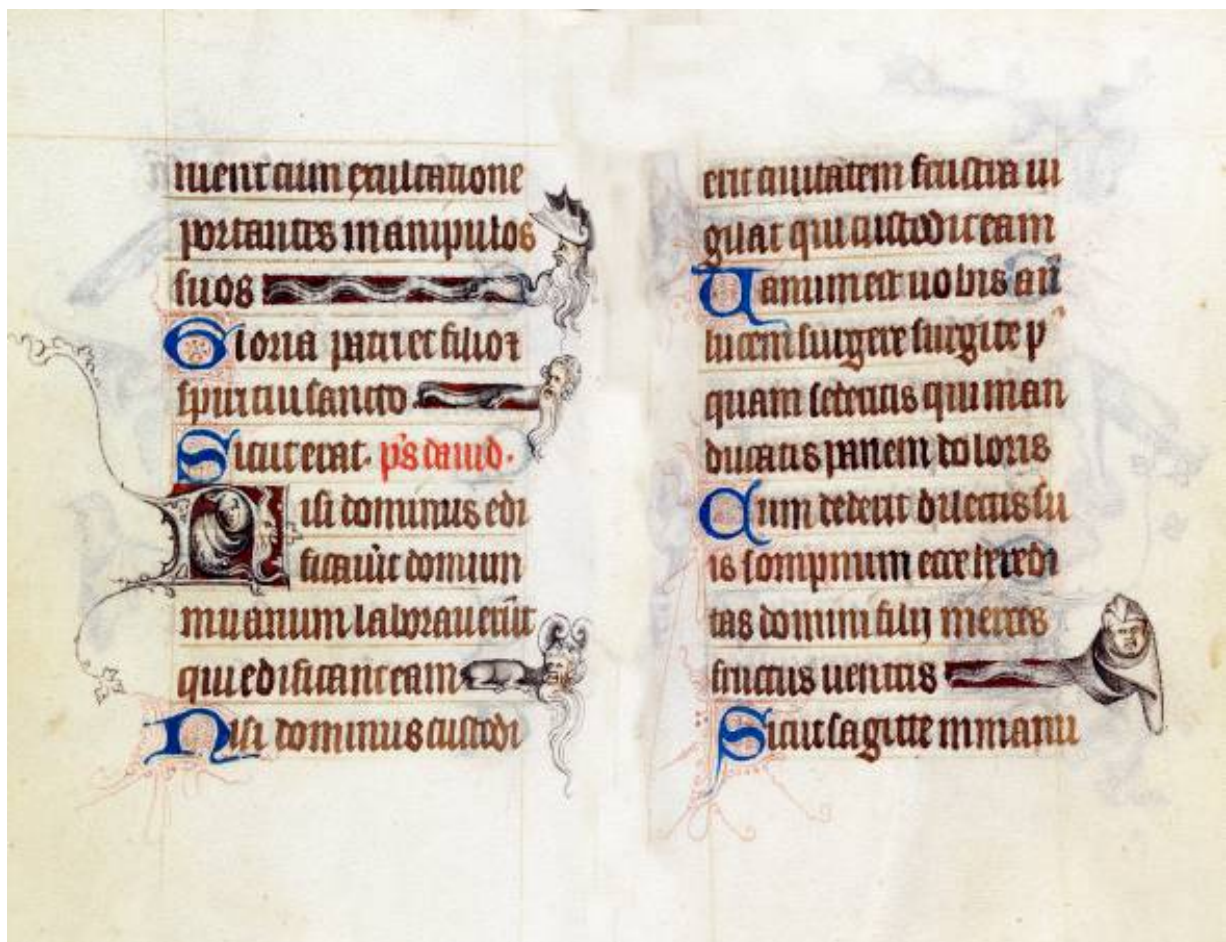 nient cum exultatione
portantes manipulos
suos
Gloria patri et filio ⁊
spiritui sancto
Sicut erat. ps david.
Nisi dominus edi
ficaverit domum
in vanum laboraverūt
qui edificant eam
Nisi dominus custodi
erit civitatem frustra vi
gilat qui custodit eam
Vanum est vobis an̄
lucem surgere surgite p
quam sederitis qui man
ducatis panem doloris
Cum dederit dilectis su
is sompnum ecce heredi
tas domini filij merces
fructus ventris
Sicut sagitte in manu